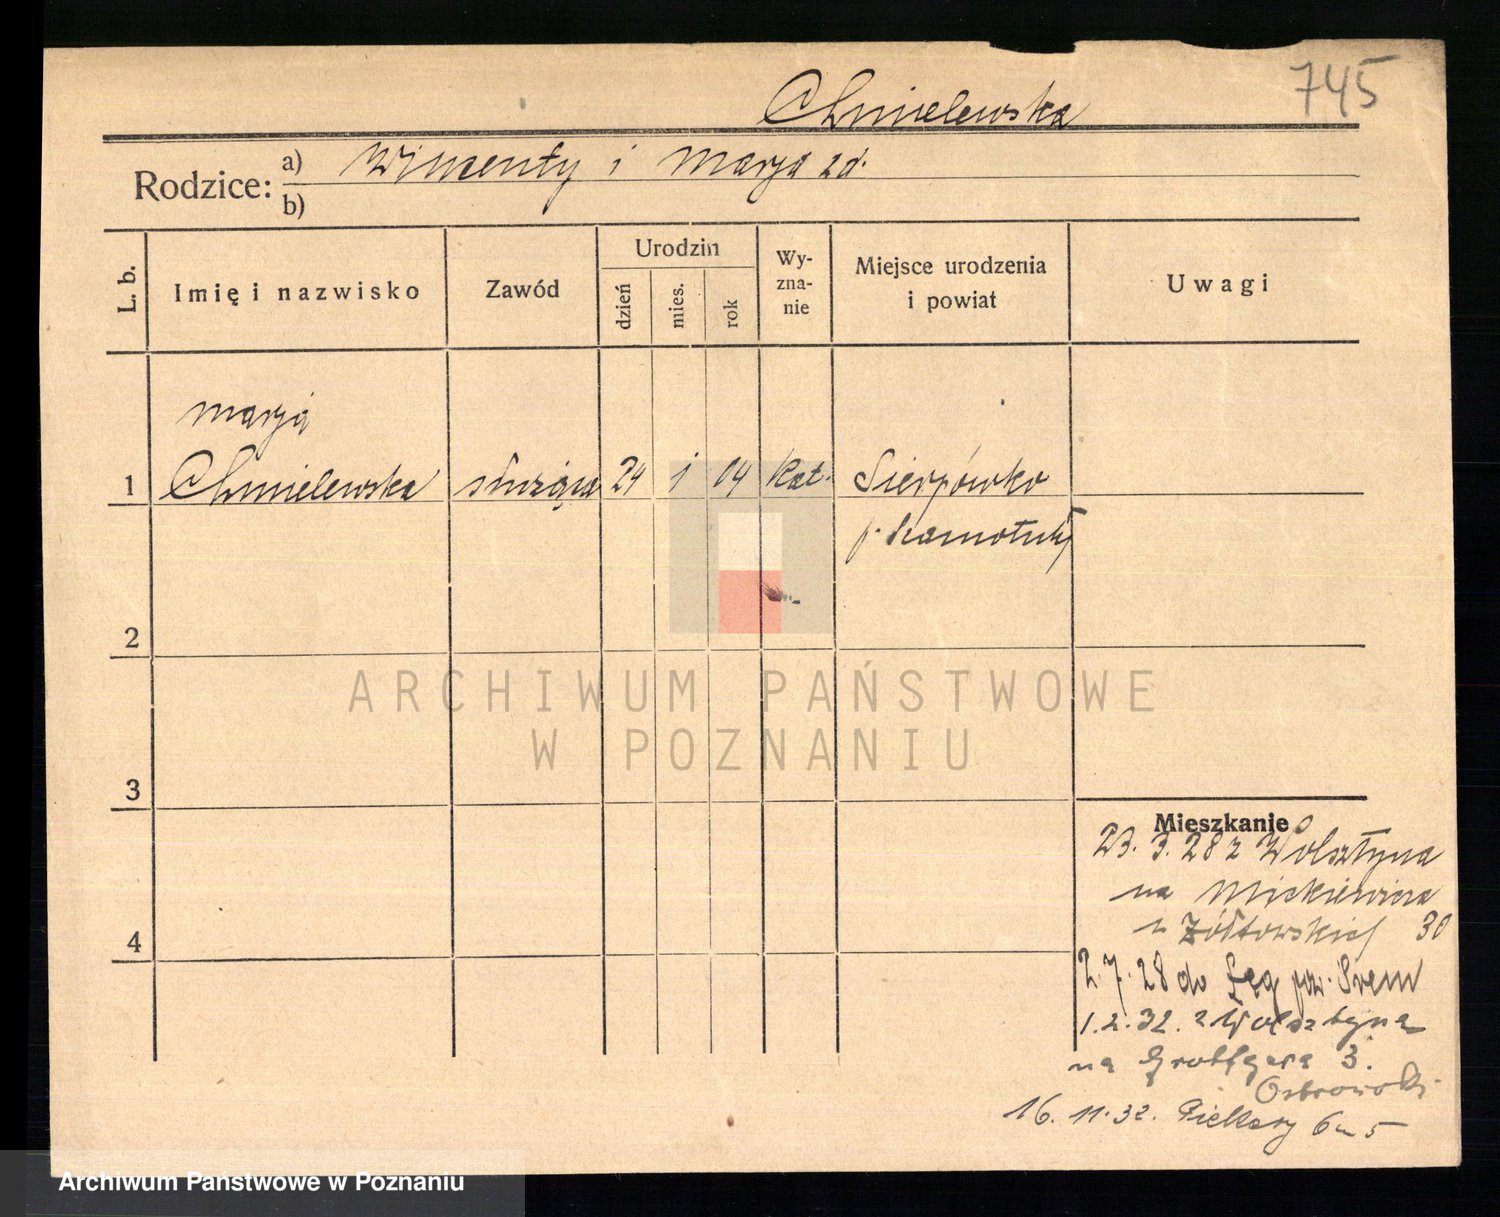 745
Chmielewska
Rodzice: a) Wincenty i Marja zd.
b)
L. b.
Imię i nazwisko
Zawód
Urodzin
dzień
mies.
rok
Wy-
zna-
nie
Miejsce urodzenia
i powiat
Uwagi
Marja
1 Chmielewska służąca 24 1 04 kat. Sierpówko
p. Szamotuły
2
3
4
ARCHIWUM PAŃSTWOWE
W POZNANIU
Mieszkanie
23. 3. 28 z Wolsztyna
na Mickiewicza
u Żółtowskiej 30
2. 7. 28 do Łęg pow. Śrem
1. 2. 32. z Wolsztyna
na 3.
16. 11. 32. Piekary 6 m 5
Archiwum Państwowe w Poznaniu